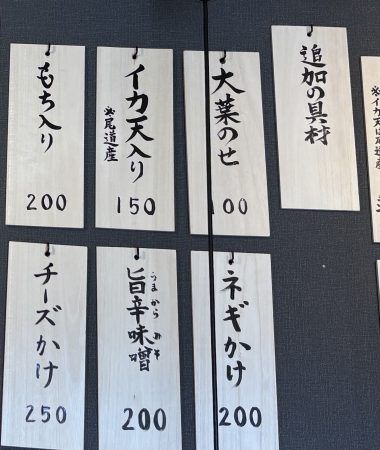 追加の具材
大葉のせ
100
イカ天入り
※尾道産
150
もち入り
200
ネギかけ
200
旨辛味噌
うまから みそ
200
チーズかけ
250